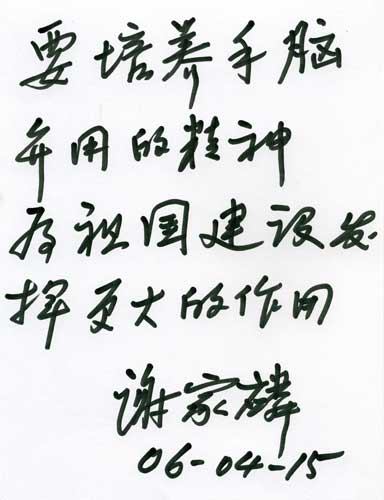 要培养手脑
并用的精神
为祖国建设发
挥更大的作用
谢家麟
06-04-15